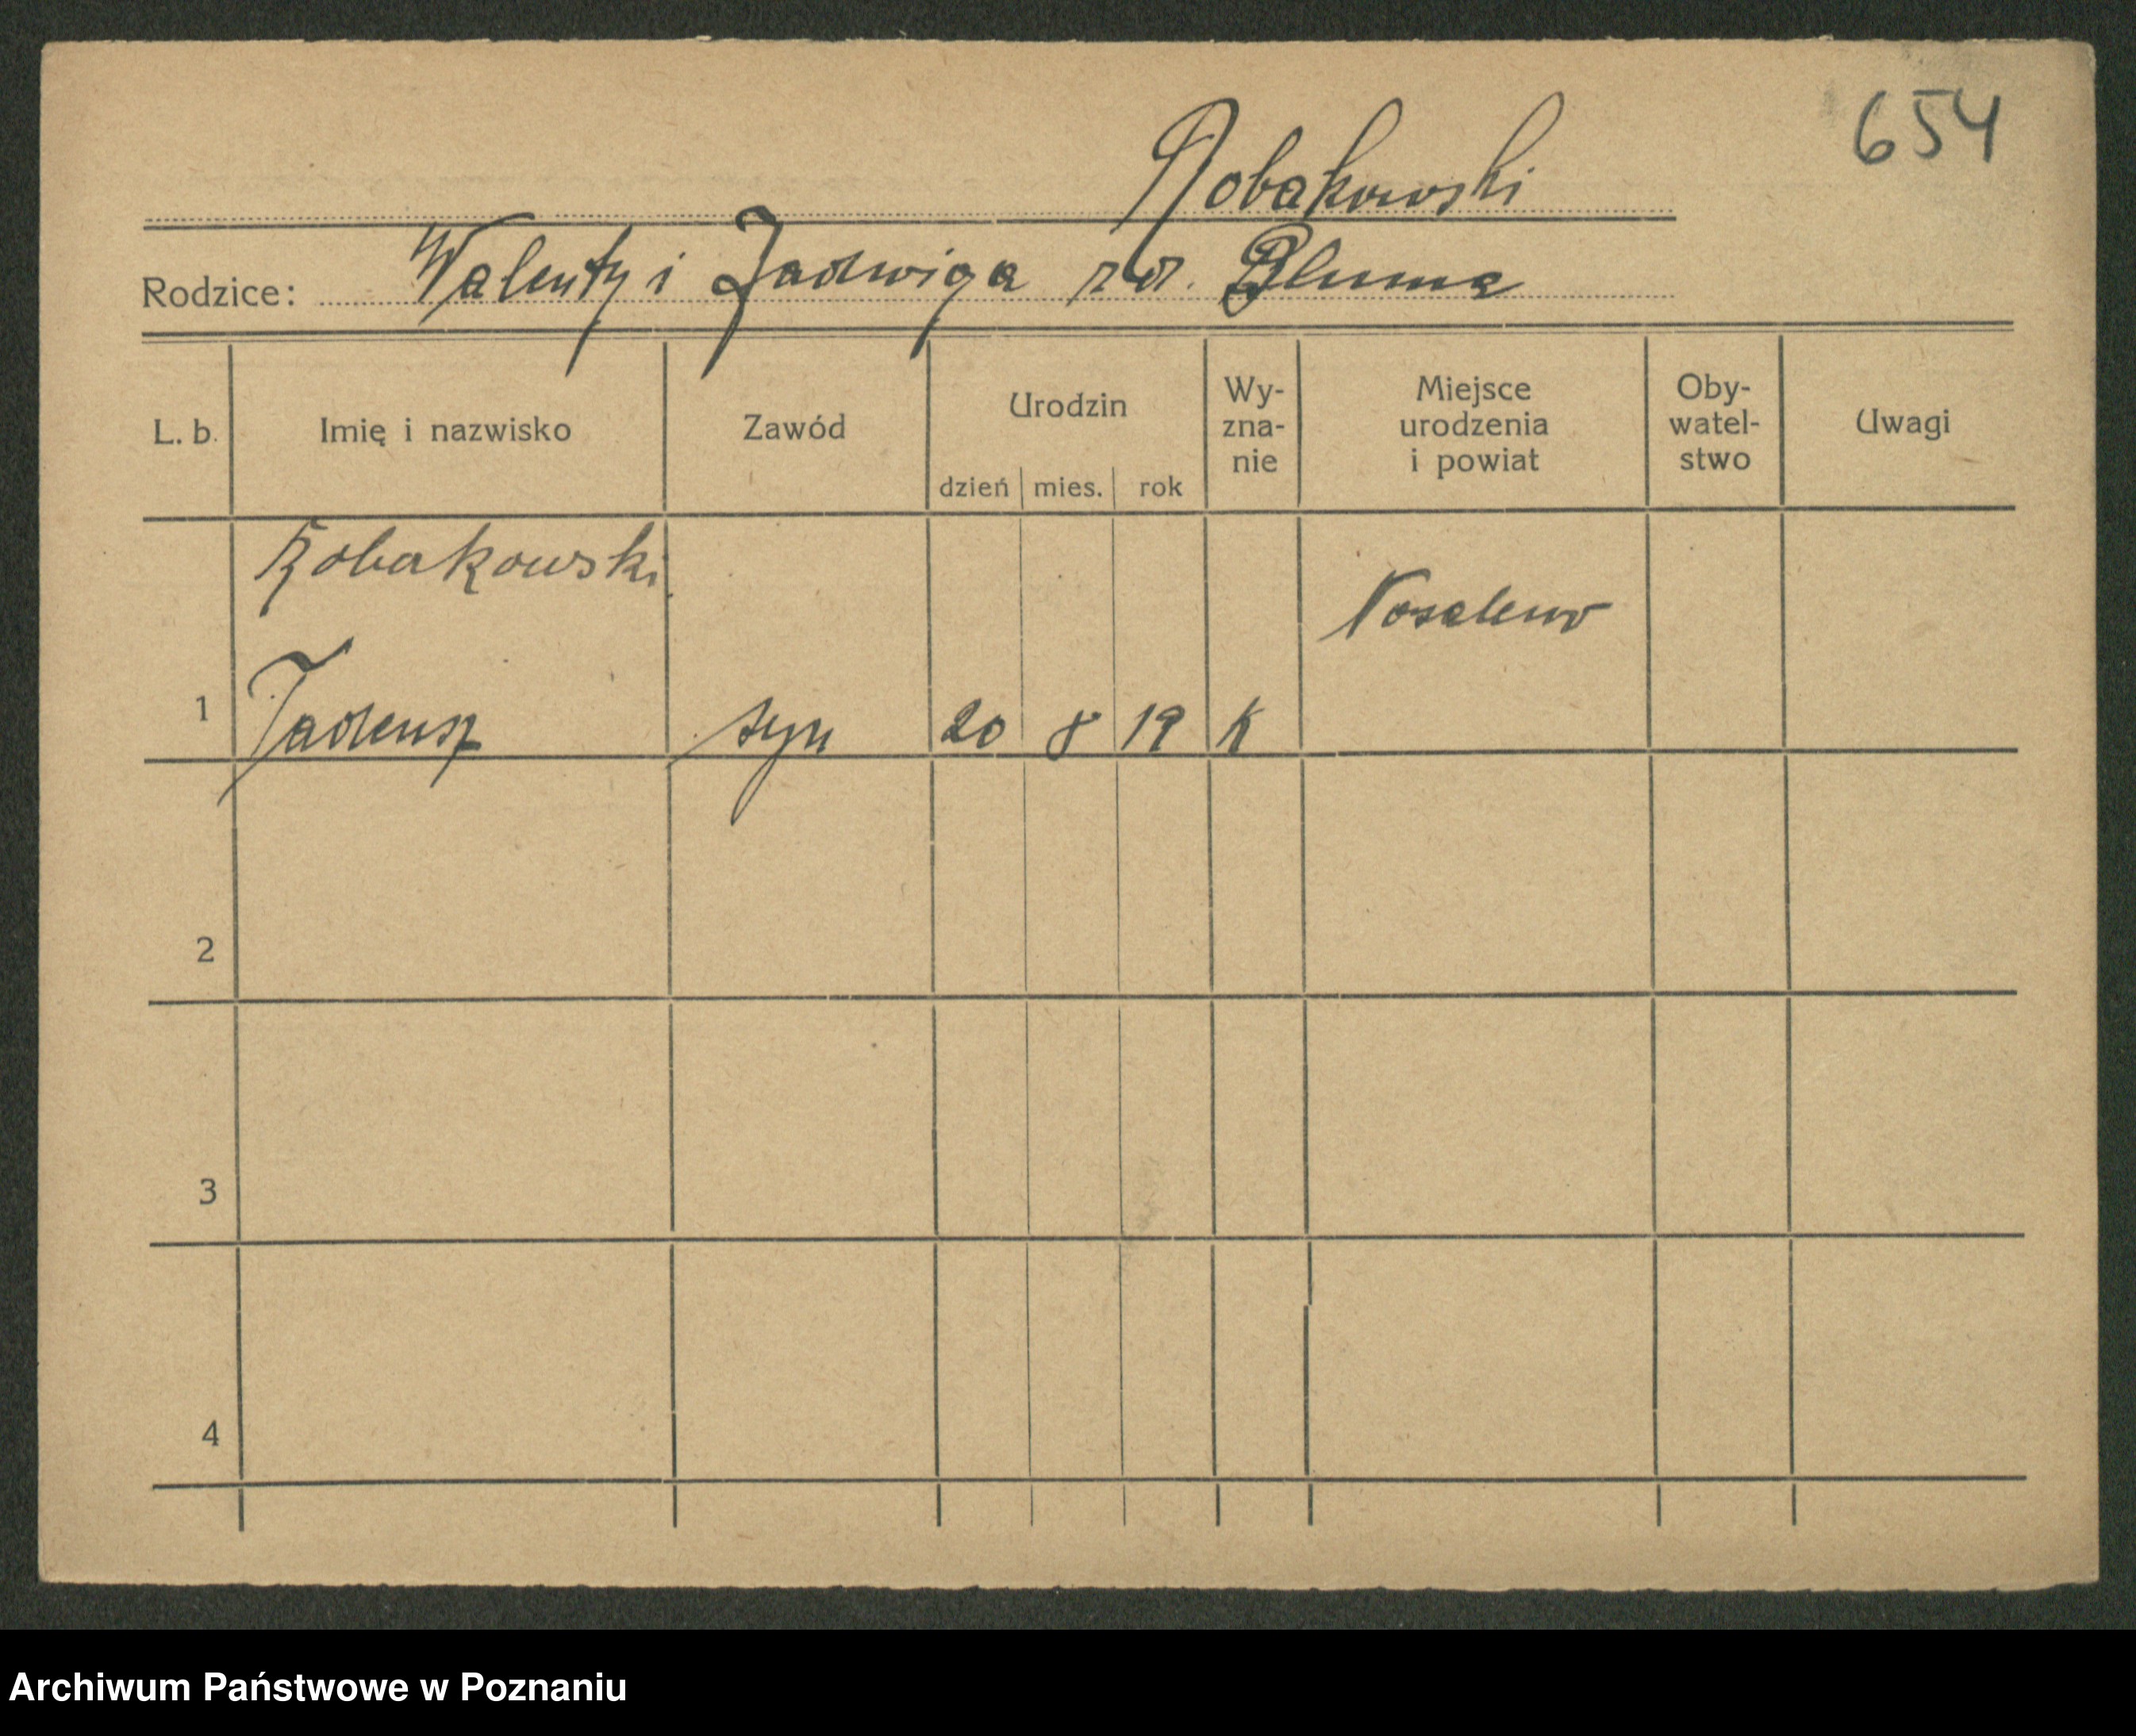 654
Robakowski
Rodzice: Walenty i Jadwiga zd. Bluma
L. b. Imię i nazwisko Zawód Urodzin dzień mies. rok Wy-zna-nie Miejsce urodzenia i powiat Oby-watel-stwo Uwagi
Robakowski
1 Tadeusz syn 20 8 19 K
2
3
4
Archiwum Państwowe w Poznaniu